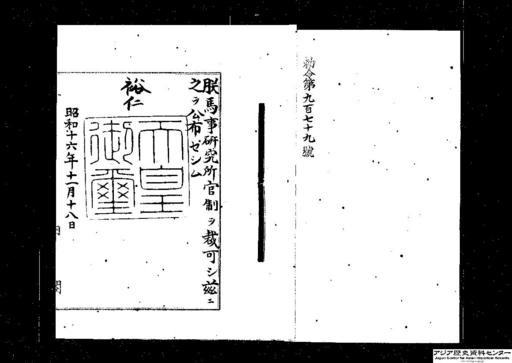 勅令第九百七十九號
朕馬事研究所官制ヲ裁可シ茲ニ
之ヲ公布セシム
裕仁
天皇
御璽
昭和十六年十一月十八日
アジア歴史資料センター
Japan Center for Asian Historical Records